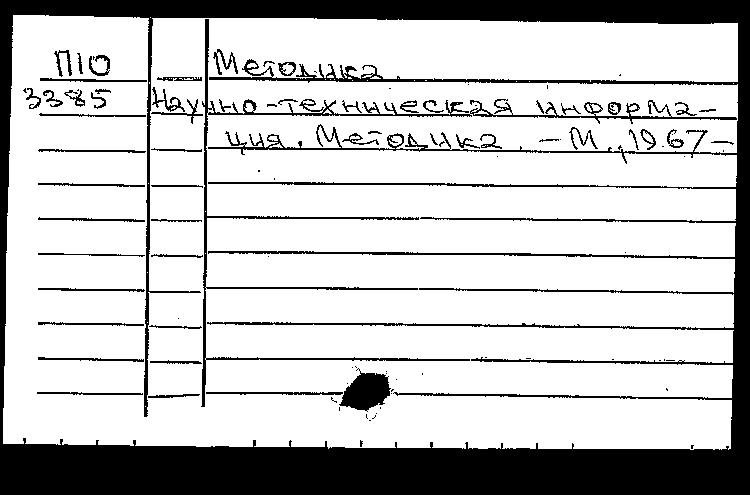 П10 Методика.
3385 Научно-техническая информа-
ция. Методика. – М., 1967–